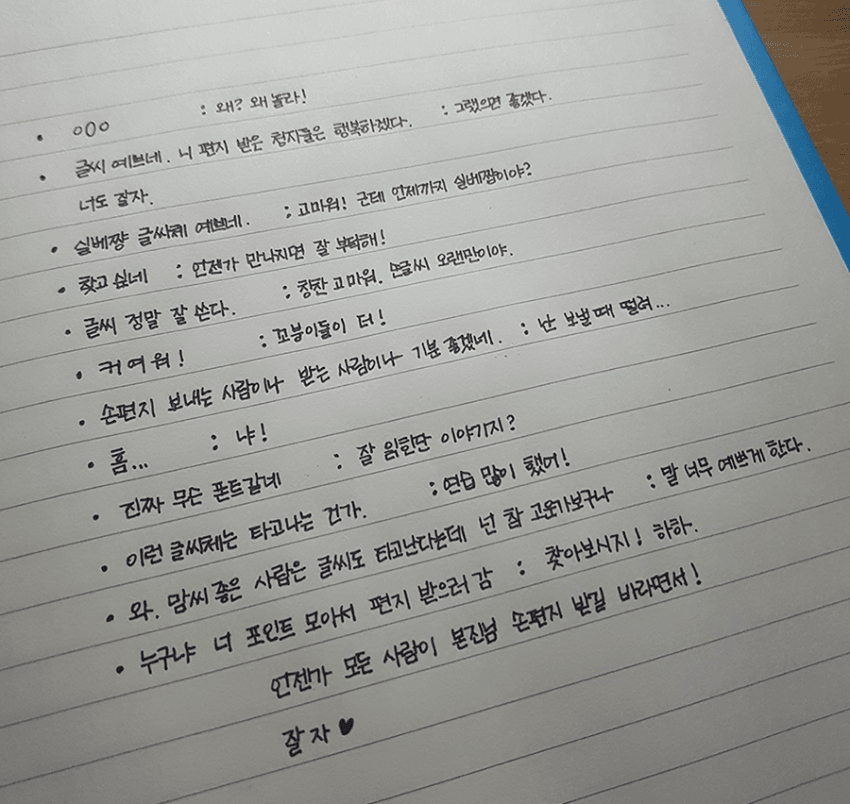 • ㅇㅇㅇ : 왜? 왜 놀라!
• 글씨 예쁘네. 니 편지 받은 첨자들은 행복하겠다. : 그랬으면 좋겠다.
너도 잘자.
• 실베쨩 글씨체 예쁘네. : 고마워! 근데 언제까지 실베짱이야?
• 찾고싶네 : 언젠가 만나지면 잘 부탁해!
• 글씨 정말 잘 쓴다. : 칭찬 고마워. 손글씨 오랜만이야.
• 커여워! : 꼬붕이들이 더!
• 손편지 보내는 사람이나 받는 사람이나 기분 좋겠네. : 난 보낼때 떨려...
• 흠... : 냐!
• 진짜 무슨 폰트같네 : 잘 읽힌단 이야기지?
• 이런 글씨체는 타고나는 건가. : 연습 많이 했어!
• 와. 맘씨 좋은 사람은 글씨도 타고난다는데 넌 참 고운가보구나 : 말 너무 예쁘게 한다.
• 누구냐 너 포인트 모아서 편지 받으러 감 : 찾아보시지! 하하.
언젠가 모든 사람이 본진님 손편지 받길 바라면서!
잘자♥